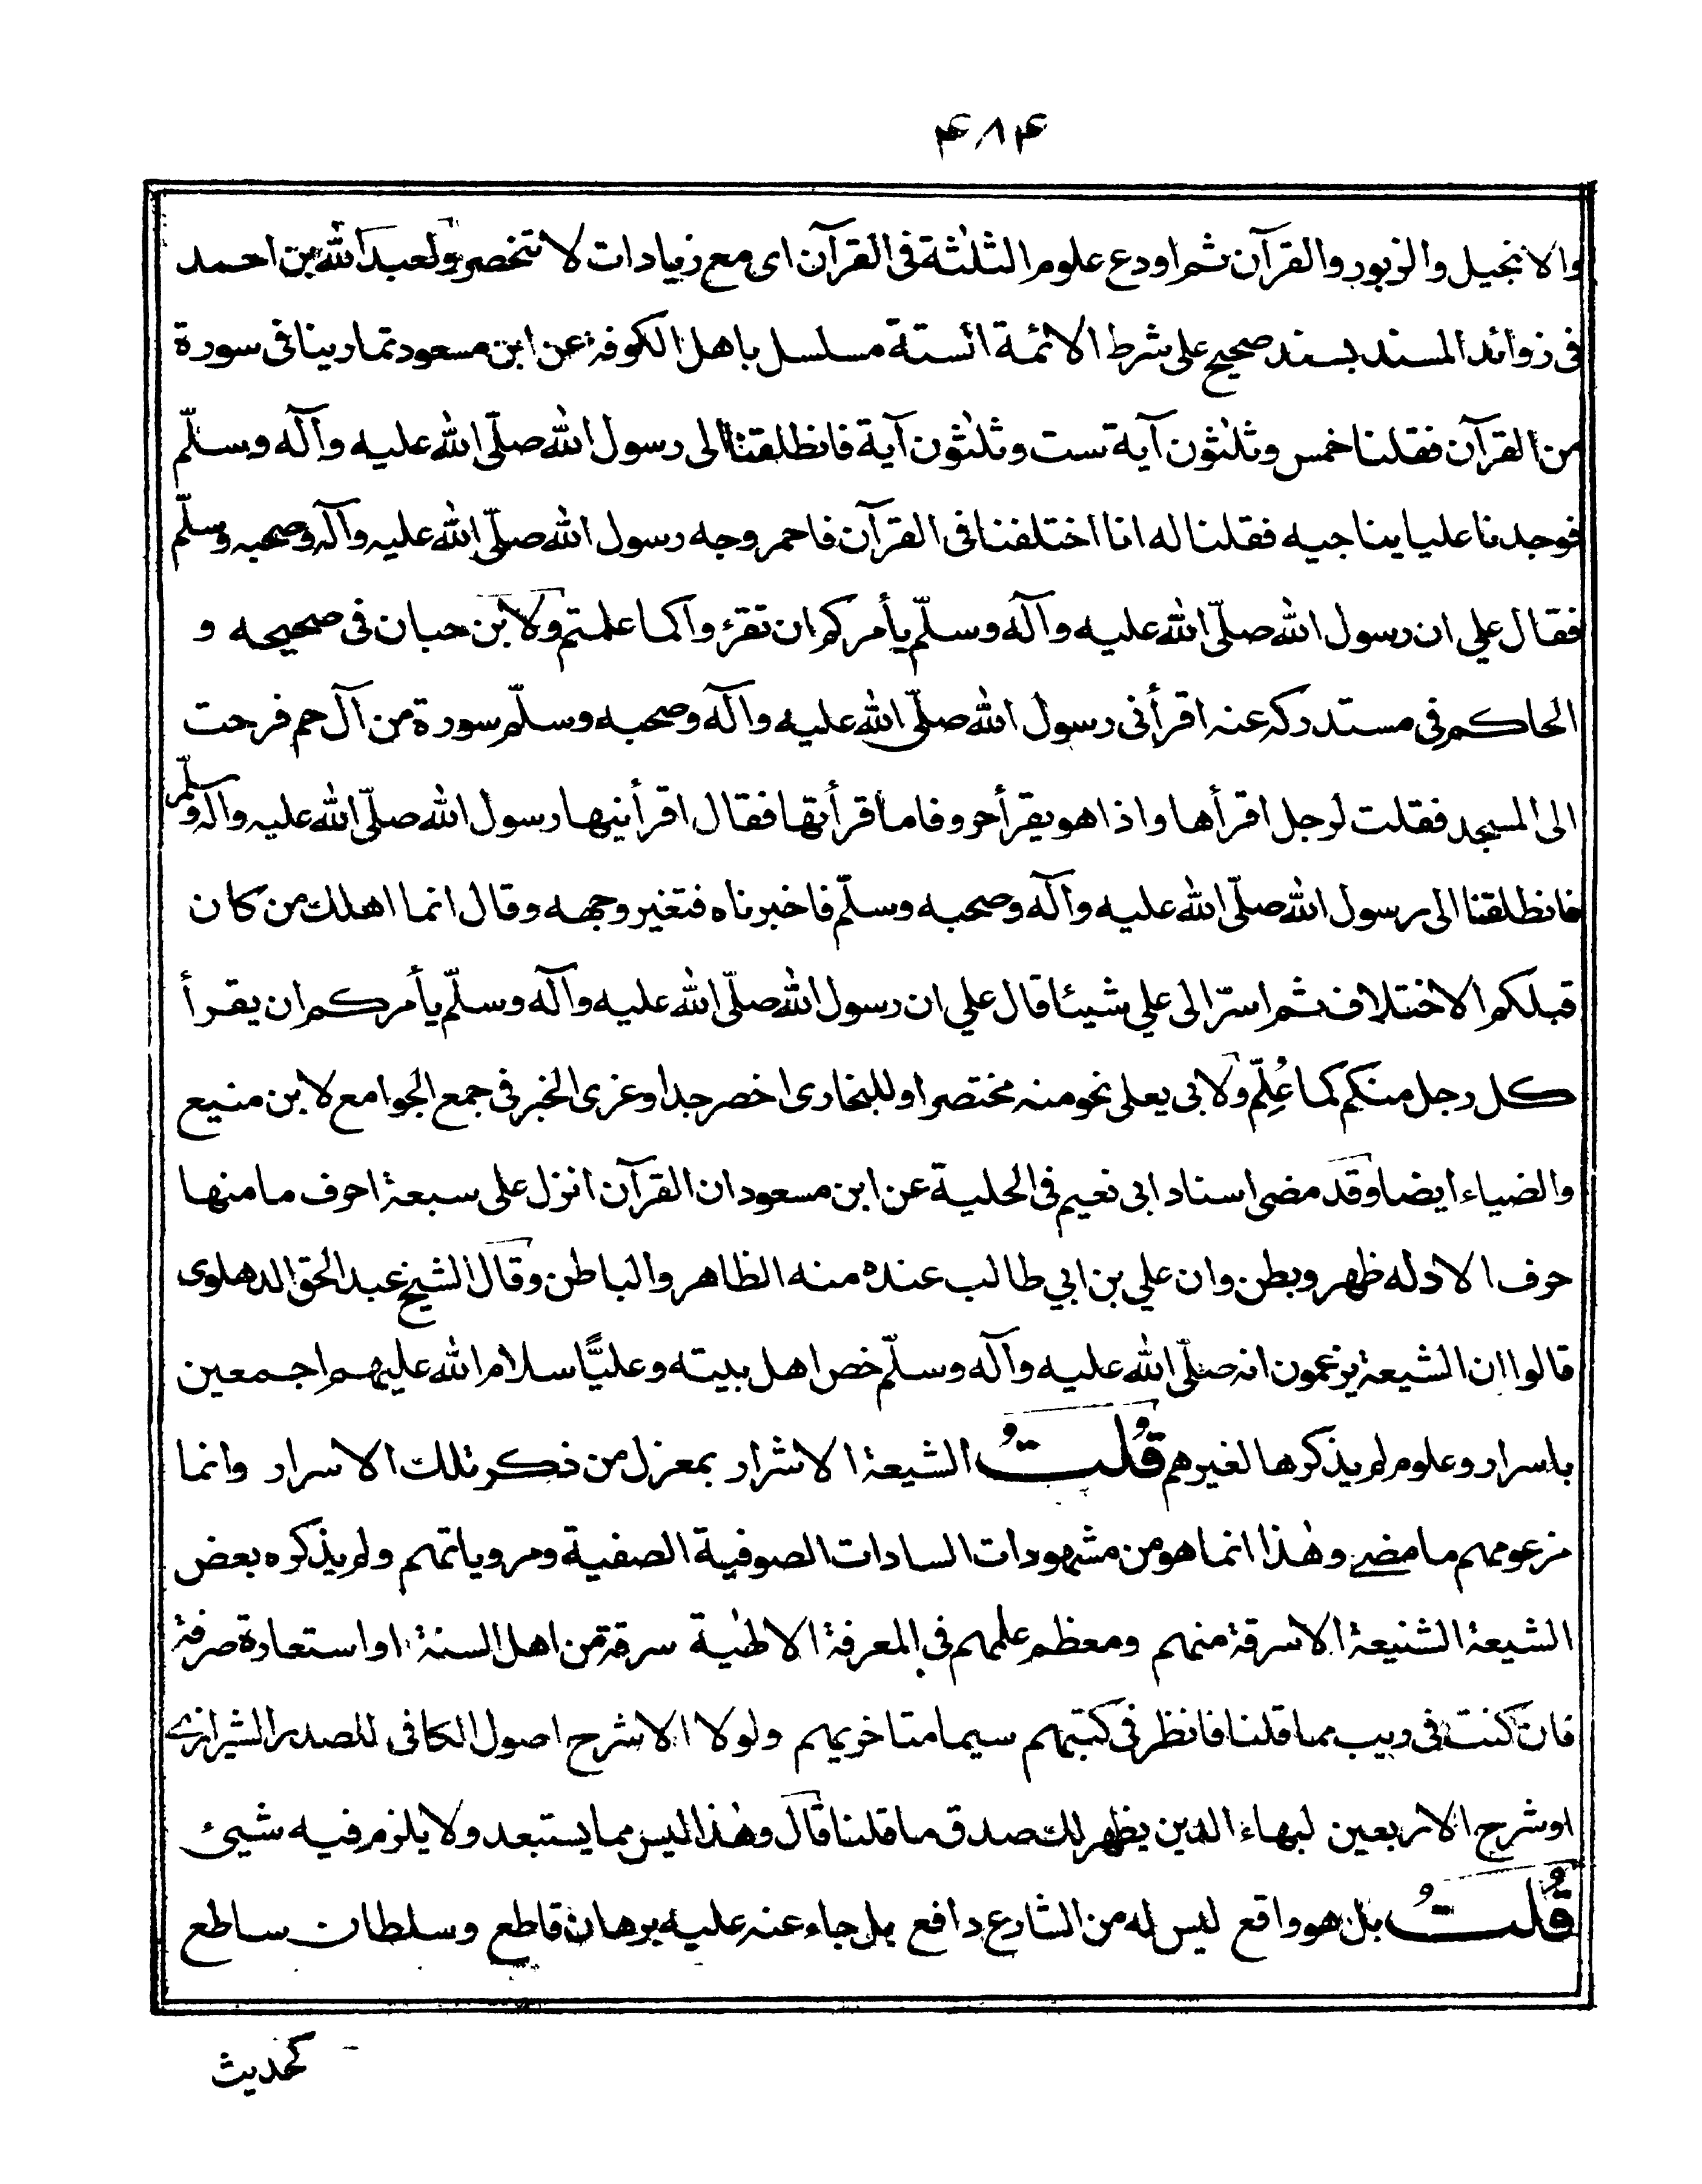 ۴۸۴
والانجيل والزبور والقرآن ثم اودع علوم الثلثة فى القرآن اى مع زيادات لا تنحصر ولعبد الله بن احمد
فى زوائد المسند بسند صحيح على شرط الائمة الستة مسلسل باهل الكوفة عن ابن مسعود تمارينا فى سورة
من القرآن فقلنا خمس وثلثون آية ست وثلثون آية فانطلقنا الى رسول الله صلّى الله عليه وآله وسلّم
فوجدنا عليا يناجيه فقلنا له انا اختلفنا فى القرآن فاحمر وجه رسول الله صلّى الله عليه وآله وصحبه وسلّم
فقال علي ان رسول الله صلّى الله عليه وآله وسلّم يأمركم ان تقرؤا كما علمتم ولابن حبان فى صحيحه و
الحاكم فى مستدركه عنه اقرأنى رسول الله صلّى الله عليه وآله وصحبه وسلّم سورة من آل حم فرحت
الى المسجد فقلت لرجل اقرأها واذا هو يقرأ حروفا ما أقرأتها فقال اقرأنيها رسول الله صلّى الله عليه وآله وسلّم
فانطلقنا الى رسول الله صلّى الله عليه وآله وصحبه وسلّم فاخبرناه فتغير وجهه وقال انما اهلك من كان
قبلكم الاختلاف ثم اسرّ الى علي شيئا قال علي ان رسول الله صلّى الله عليه وآله وسلّم يأمركم ان يقرأ
كل رجل منكم كما عُلِّم ولابى يعلى نحو منه مختصرا وللبخارى اخصر جدا وعزى الخبر فى جمع الجوامع لابن منيع
والضياء ايضا وقد مضى اسناد ابى نعيم فى الحلية عن ابن مسعود ان القرآن انزل على سبعة احرف ما منها
حرف الا وله ظهر وبطن وان علي بن ابي طالب عنده منه الظاهر والباطن وقال الشيخ عبد الحق الدهلوى
قالوا ان الشيعة يزعمون انه صلّى الله عليه وآله وسلّم خص اهل بيته وعليًّا سلام الله عليهم اجمعين
باسرار وعلوم لم يذكرها لغيرهم قُلتُ الشيعة الاشرار بمعزل من ذكر تلك الاسرار وانما
مزعومهم ما مضے وهٰذا انما هو من مشهودات السادات الصوفية الصفية ومروياتهم ولم يذكره بعض
الشيعة الشنيعة الا سرقة منهم ومعظم علمهم فى المعرفة الالٰهية سرقة من اهل السنة او استعادة صرفة
فان كنت فى ريب مما قلنا فانظر فى كتبهم سيما متاخريهم ولولا الا شرح اصول الكافى للصدر الشيرازے
او شرح الاربعين لبهاء الدين يظهر لك صدق ما قلنا قال وهٰذا ليس مما يستبعد ولا يلزم فيه شيئ
قُلتُ بل هو واقع ليس له من الشارع دافع بل جاء عنه عليه برهان قاطع وسلطان ساطع
كحديث